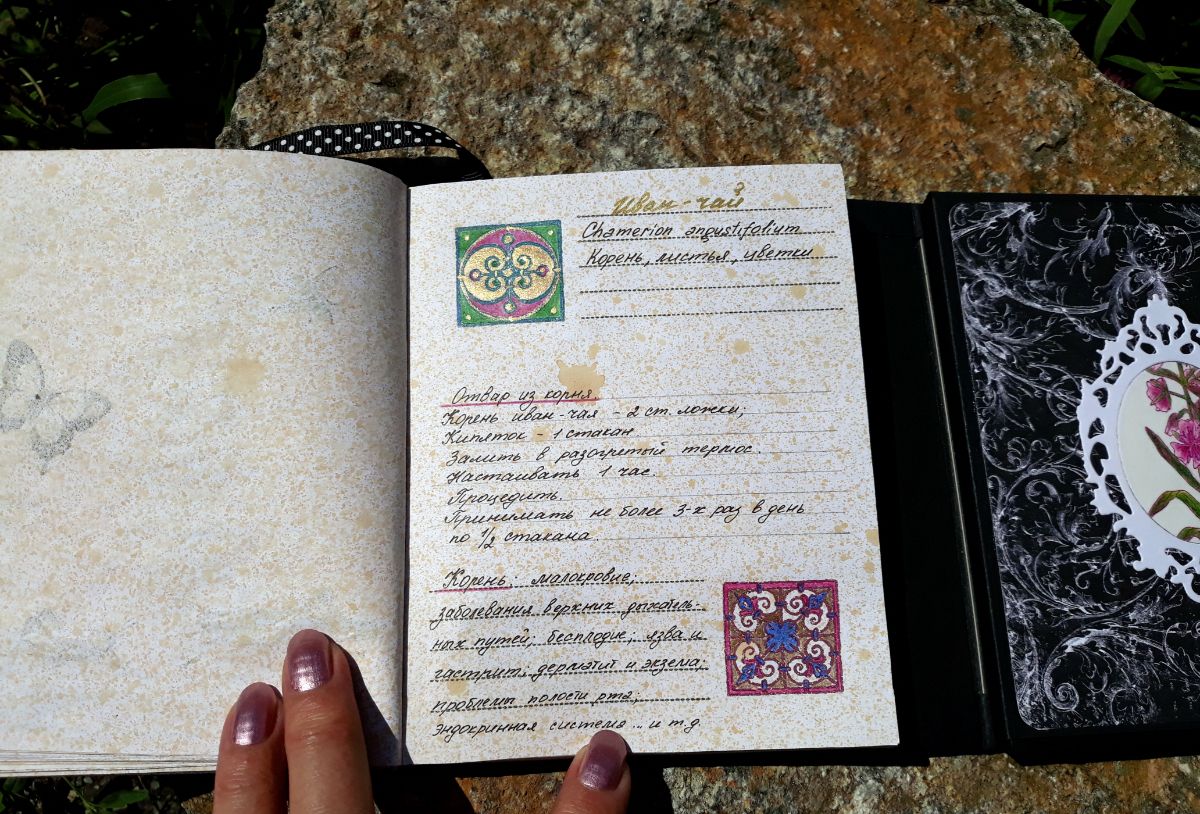 Иван-чай
Chamerion angustifolium
Корень, листья, цветки
Отвар из корня.
Корень иван-чая - 2 ст. ложки;
Кипяток - 1 стакан
Залить в разогретый термос.
Настаивать 1 час.
Процедить.
Принимать не более 3-х раз в день
по 1/2 стакана.
Корень: малокровие;
заболевания верхних дыхатель-
ных путей; бесплодие; язва и
гастрит; дерматит и экзема;
проблемы полости рта;
эндокринная система... и т.д